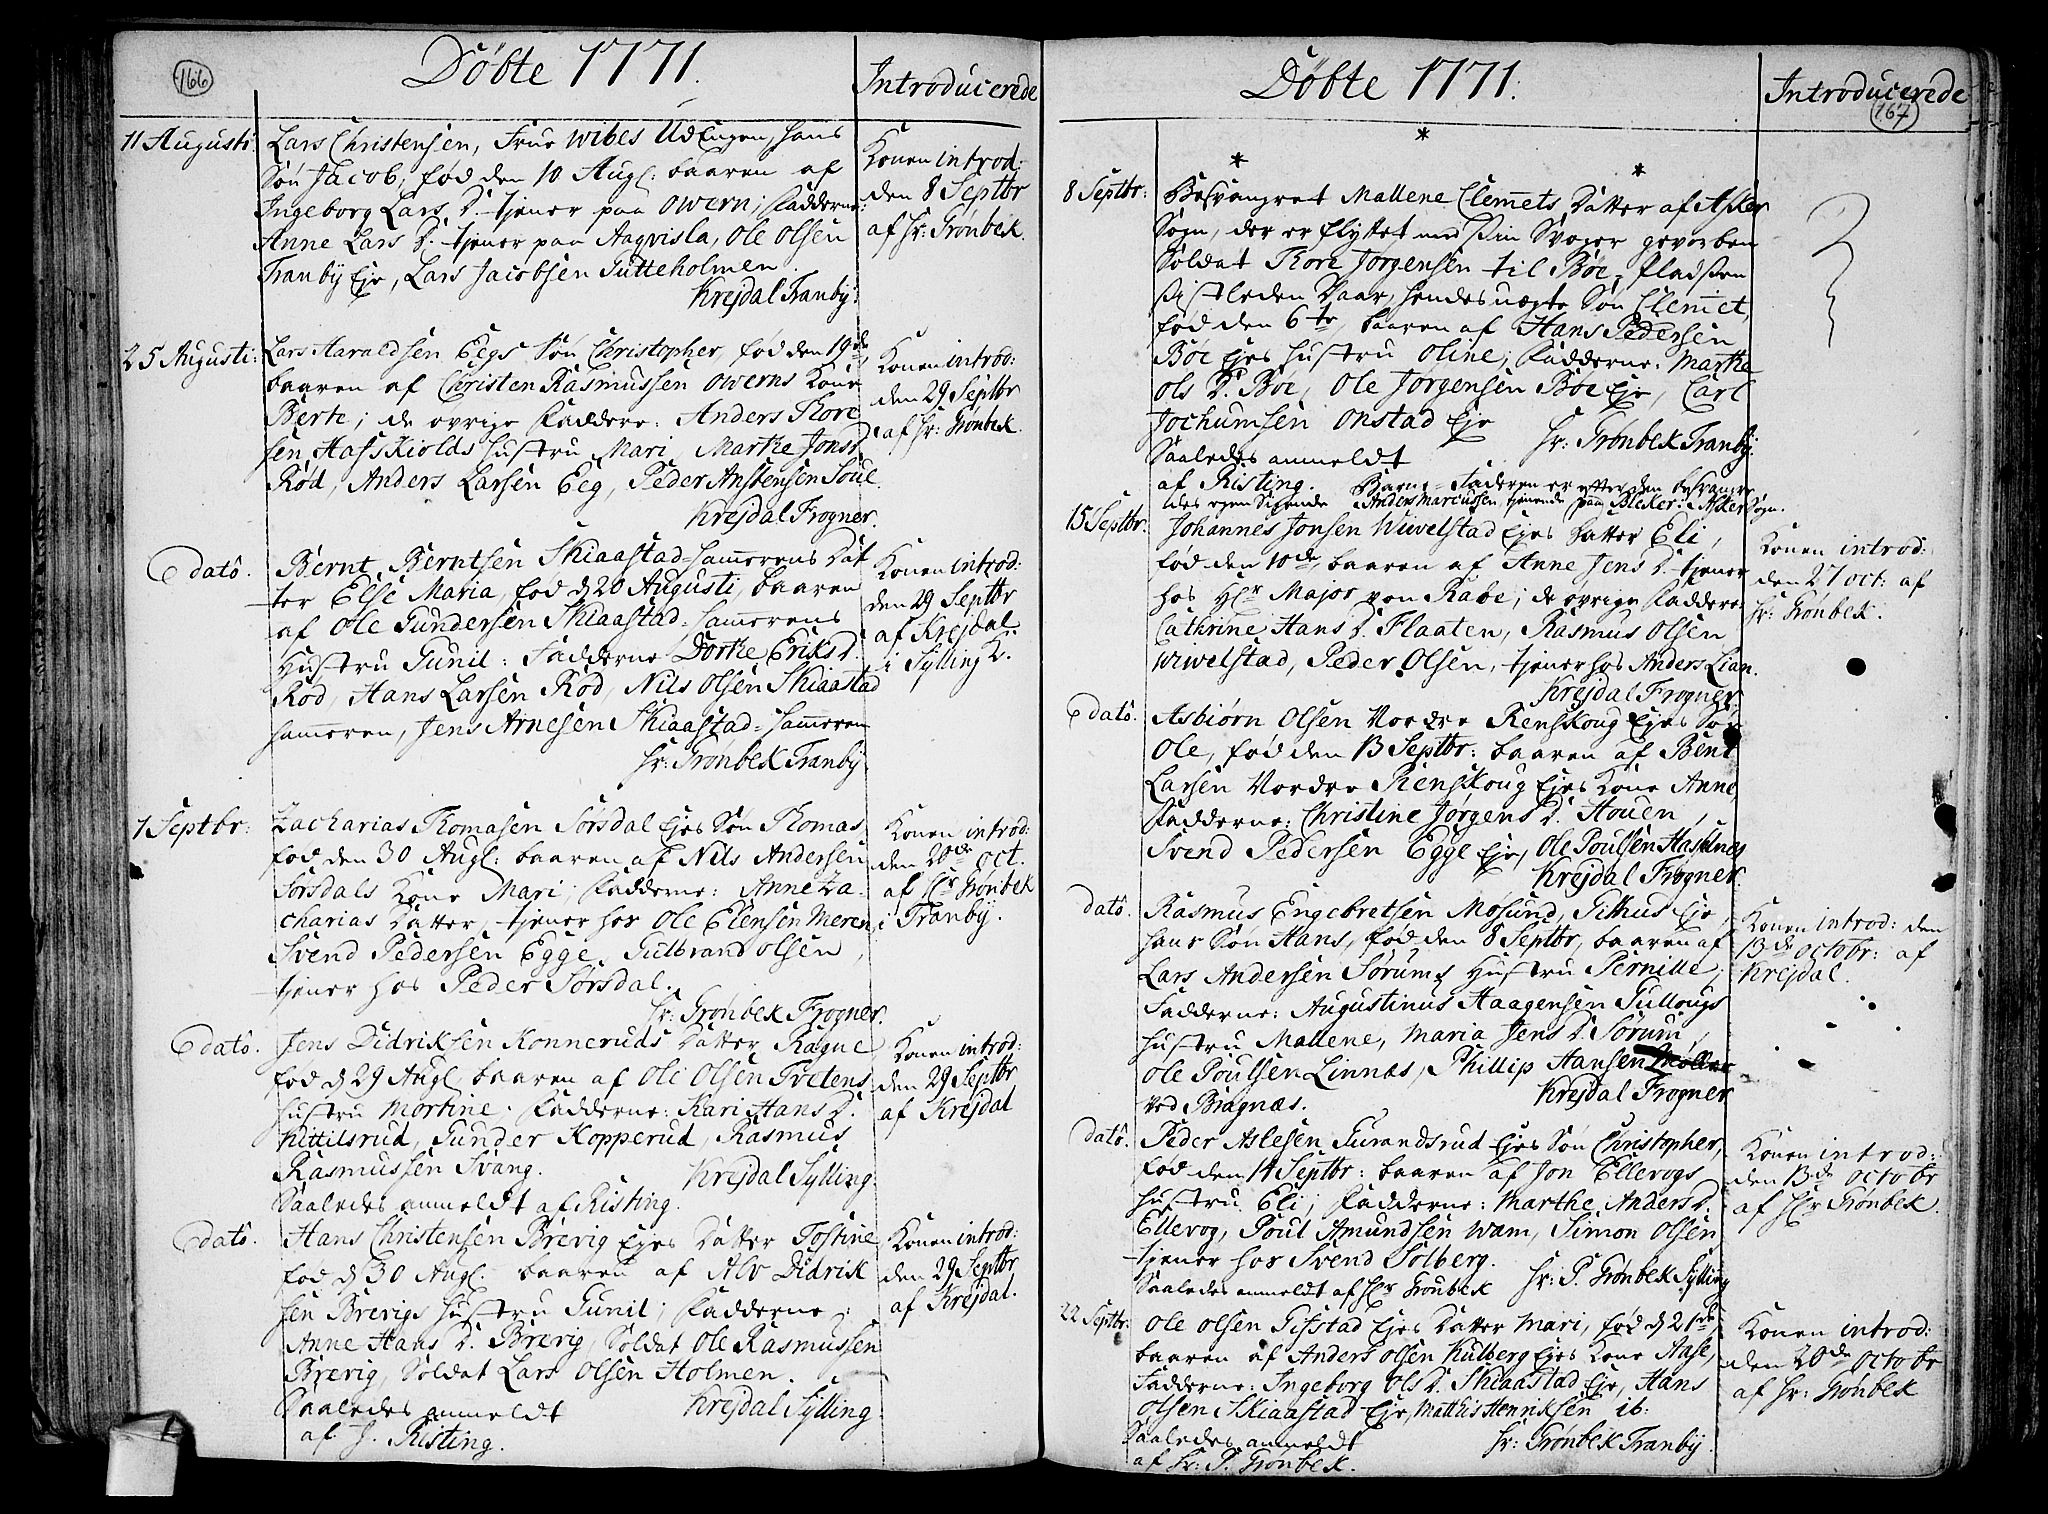 166
Döbte 1771.
Introducerede
11 Augusti
Lars Christensen, Frue Wibes UdEngen, hans
Sön Jacob, fød den 10 Augl: baaren af
Ingeborg Lars D. tjener paa Owern; Fadderne:
Anne Lars D. tjener paa Aaqvisla, Ole Olsen
Tranbÿ Eje, Lars Jacobsen Gutteholmen.
Krejdal Tranbÿ.
Konen introd:
den 8 Septbr
af Hr: Grönbek.
25 Augusti:
Lars Haraldsen Eegs Sön Christopher, fød den 19de
baaren af Christen Rasmussen Owerns Kone
Berte; de øvrige Faddere: Anders Thore
sen Hafskiolds Hustru Mari, Marthe Jons D.
Röd, Anders Larsen Eeg, Peder Anstensen Soul.
Krejdal Frogner.
Konen introd:
den 29 Septbr
af Hr: Grönbek.
dato.
Bernt Berntsen Skiaastad-Hammerens Dat
ter Else Maria, fød d 20 Augusti, baaren
af Ole Gundersen Skiaastad-Hammerens
Hustru Gunil: Fadderne Dorthe Eriks D.
Röd, Hans Larsen Röd, Nils Olsen Skiaastad
Hammeren, Jens Arnesen Skiaastad-Hammeren
Hr: Grönbek Tranbÿ.
Konen introd:
den 29 Septbr
af Krejdal
i Sylling K.
1 Septbr:
Zacharias Thomasen Sörsdal Ejes Sön Thomas
fød den 30 Augl: baaren af Nils Andersen
Sörsdals Kone Mari; Fadderne: Anne Za-
charias Datter, tjener hos Ole Ellensen Meren,
Svend Pedersen Egge, Gulbrand Olsen,
tjener hos Peder Sörsdal.
Hr: Grönbek Frogner.
Konen introd:
den 20de Oct.
af Hr Grönbek
i Tranbÿ.
dato.
Jens Didriksen Konneruds Datter Ragne
fød d 29 Augl baaren af Ole Olsen Tvetens
Hustru Mortine. Fadderne: Kari Hans D.
Kittilsrud, Gunder Kopperud, Rasmus
Rasmussen Svang.
Krejdal Sylling.
Saaledes anmeldt af Risting.
Konen introd:
den 29 Septbr
af Krejdal
dato.
Hans Christensen Brevig Ejes Datter Tostine
fød d 30 Augl. baaren af Alv Didrik
sen Brevigs Hustru Gunil; Fadderne:
Anne Hans D. Brevig, Soldat Ole Rasmussen
Brevig, Soldat Lars Olsen Holmen.
Saaledes anmeldt
Krejdal Sylling
af H. Risting.
Konen introd:
den 29 Septbr
af Krejdal.
Döbte 1771.
Introducerede
167
8 Septbr:
Besvangret Mallene Clemets Datter af Asker
Sogn, der er flyttet med Sin Svoger gevorben
Soldat Thore Jörgensen til Böe-Pladsen
sistleden Vaar, hendes uægte Sön Clemet,
fød den 6te, baaren af Hans Pedersen
Böe Ejes Hustru Oline; Fadderne: Marthe
Ols D. Böe, Ole Jörgensen Böe Eje, Carl
Jochumsen Onstad Eje
Hr: Grönbek Tranbÿ.
Saaledes anmeldt
af Risting. Barne-Faderen er efter den besvangre
des egen Sigende Anders Marcussen, tjenende paa Bleker i Asker Sogn.
15 Septbr:
Johannes Jonsen Wiwelstad Ejes Datter Eli,
fød den 10de, baaren af Anne Jens D. tjener
hos Hr Major von Rabe; de øvrige Faddere:
Cathrine Hans D. Flaaten, Rasmus Olsen
Wiwelstad, Peder Olsen, tjener hos Anders Lian.
Krejdal Frogner.
Konen introd:
den 27 Oct: af
Hr: Grönbek.
dato.
Asbiörn Olsen Nordre Renskoug Ejes Sön
Ole, fød den 13 Septbr: baaren af Bent
Larsen Nordre Renskoug Ejes Kone Anne,
Fadderne: Christine Jörgens D. Houen,
Svend Pedersen Egge Eje, Ole Poulsen Haselnes
Krejdal Frogner.
dato.
Rasmus Engebretsen Mosund, Githus Eje,
hans Sön Hans, fød den 8 Septbr, baaren af
Lars Andersen Sörums Hustru Pernille;
Fadderne: Augustinus Haagensen Gullougs
Hustru Mallene, Maria Jens D. Sörum,
Ole Poulsen Linnæs, Phillip Hansen Möller
ved Bragnæs.
Krejdal Frogner
Konen introd: den
13de Octobr: af
Krejdal.
dato.
Peder Aslesen Gurandsrud Ejes Sön Christopher,
fød den 14 Septbr: baaren af Jon Ellevogs
Hustru Eli; Fadderne: Marthe Anders D.
Ellevog, Poul Amundsen Wam, Simon Olsen
tjener hos Svend Solberg.
Hr: P. Grönbek Sylling
Saaledes anmeldt af Hr Grönbek
Konen introd:
den 13de Octobr
af Hr Grönbek.
22 Septbr:
Ole Olsen Gifstad Ejes Datter Mari, fød d 21de
baaren af Anders Olsen Kulberg Ejes Kone Aase,
Fadderne: Ingeborg Ols D. Skiaastad Eje, Hans
Olsen Skiaastad-Eje, Mathis Henriksen ib:
Saaledes anmeldt
Hr: Grönbek Tranbÿ.
af Hr: P. Grönbek.
Konen introd:
den 20de Octobr
af Hr: Grönbek